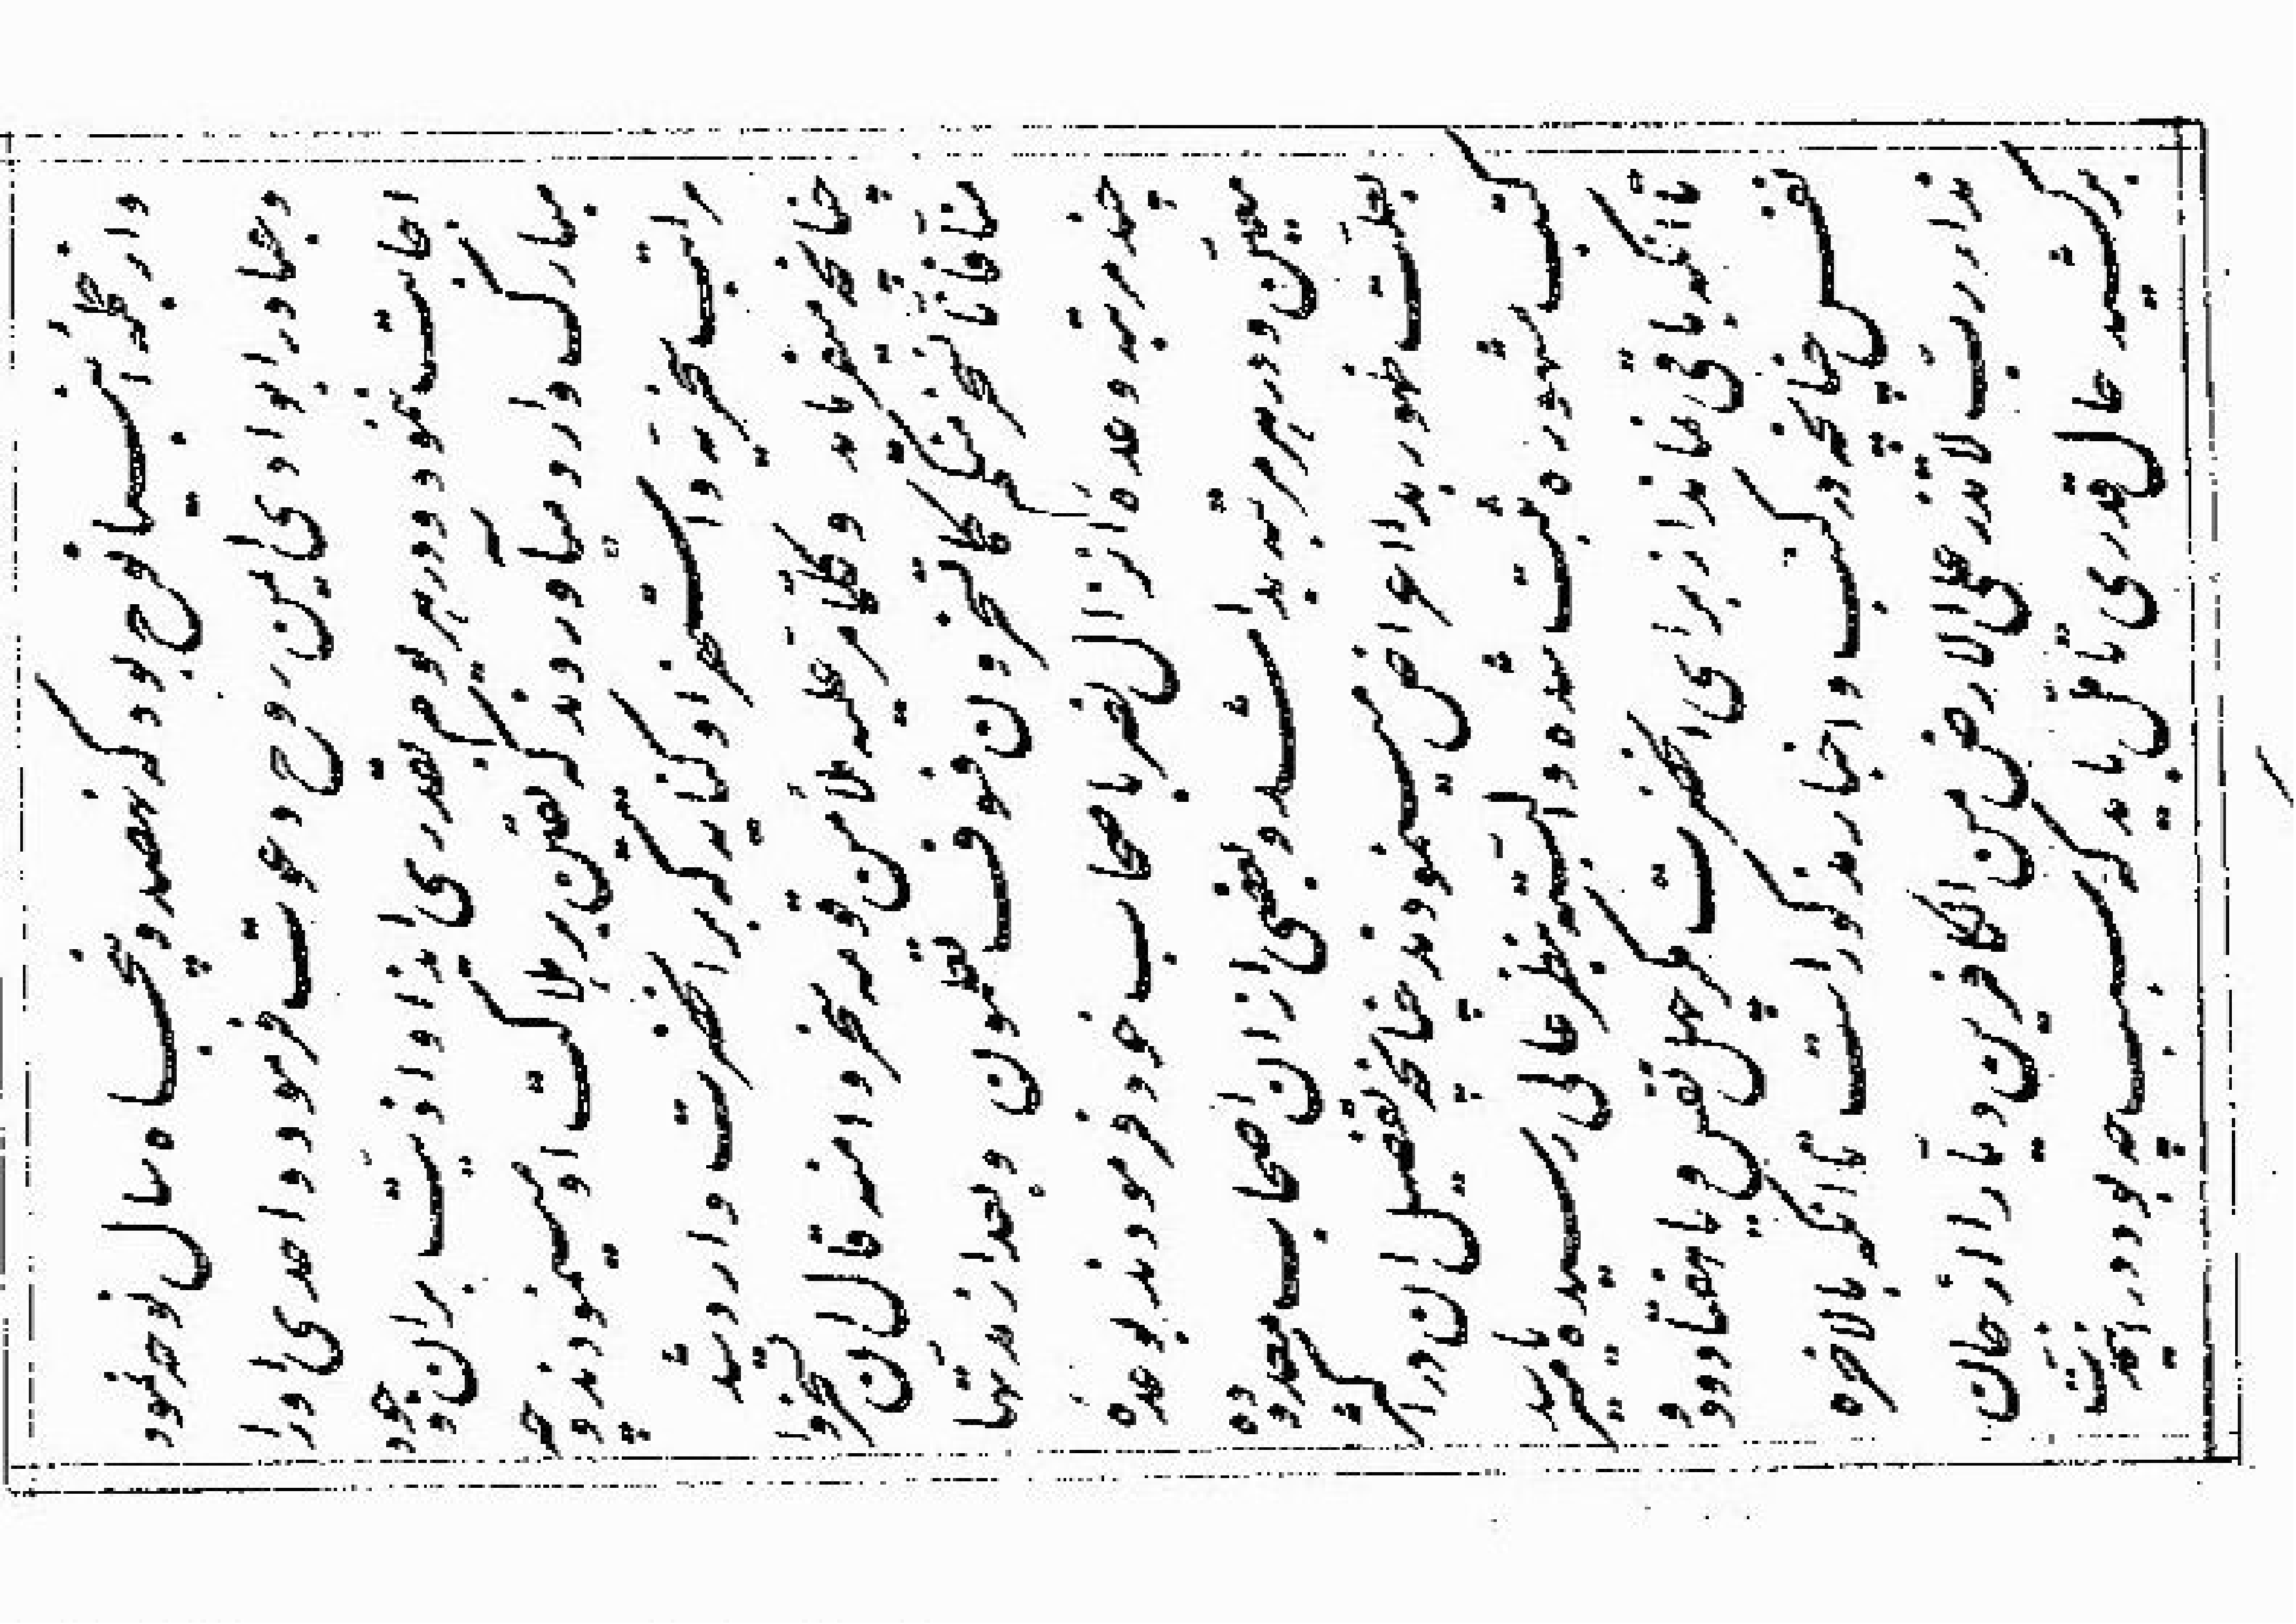 و از جمله انبیا نوح بود که نهصد و پنجاه سال نوحه نمود
و عباد را بوادی ایمن روح دعوت فرمود و احدی او را
اجابت ننمود و در هر یوم بقدری ایذا و اذیت بر ان وجود
مبارک وارد میاوردند که یقین بر هلاکت او مینمودند و چه
مراتب سخریه و استهزا و کنایه که بر انحضرت وارد شد
چنانچه میفرماید و کلّما مرّ علیه ملأ من قومه سخروا منه قال ان تسخروا
منّا فانّا نسخر منکم کما تسخرون فسوف تعلمون و بعد از مدتها
چند مرتبه وعده انزال نصر باصحاب خود فرمودند بوعده
معین و در هر مرتبه بدا شد و بعضی از ان اصحاب معدوده
بعلت ظهور بدا اعراض مینمودند چنانچه تفصیل ان در اکثر
کتب مشهوره ثبت شده و البته بنظر عالی رسیده یا میرسد
تا انکه باقی نماند از برای انحضرت مگر چهل نفس و یا هفتاد و دو
نفس چنانچه در کتب و اخبار مذکور است تا انکه بالاخره
ندای ربّ لا تذر علی الارض من الکافرین دیارا از جان
برکشید حال قدری تأمل باید که سبب چه بود در اینمدت